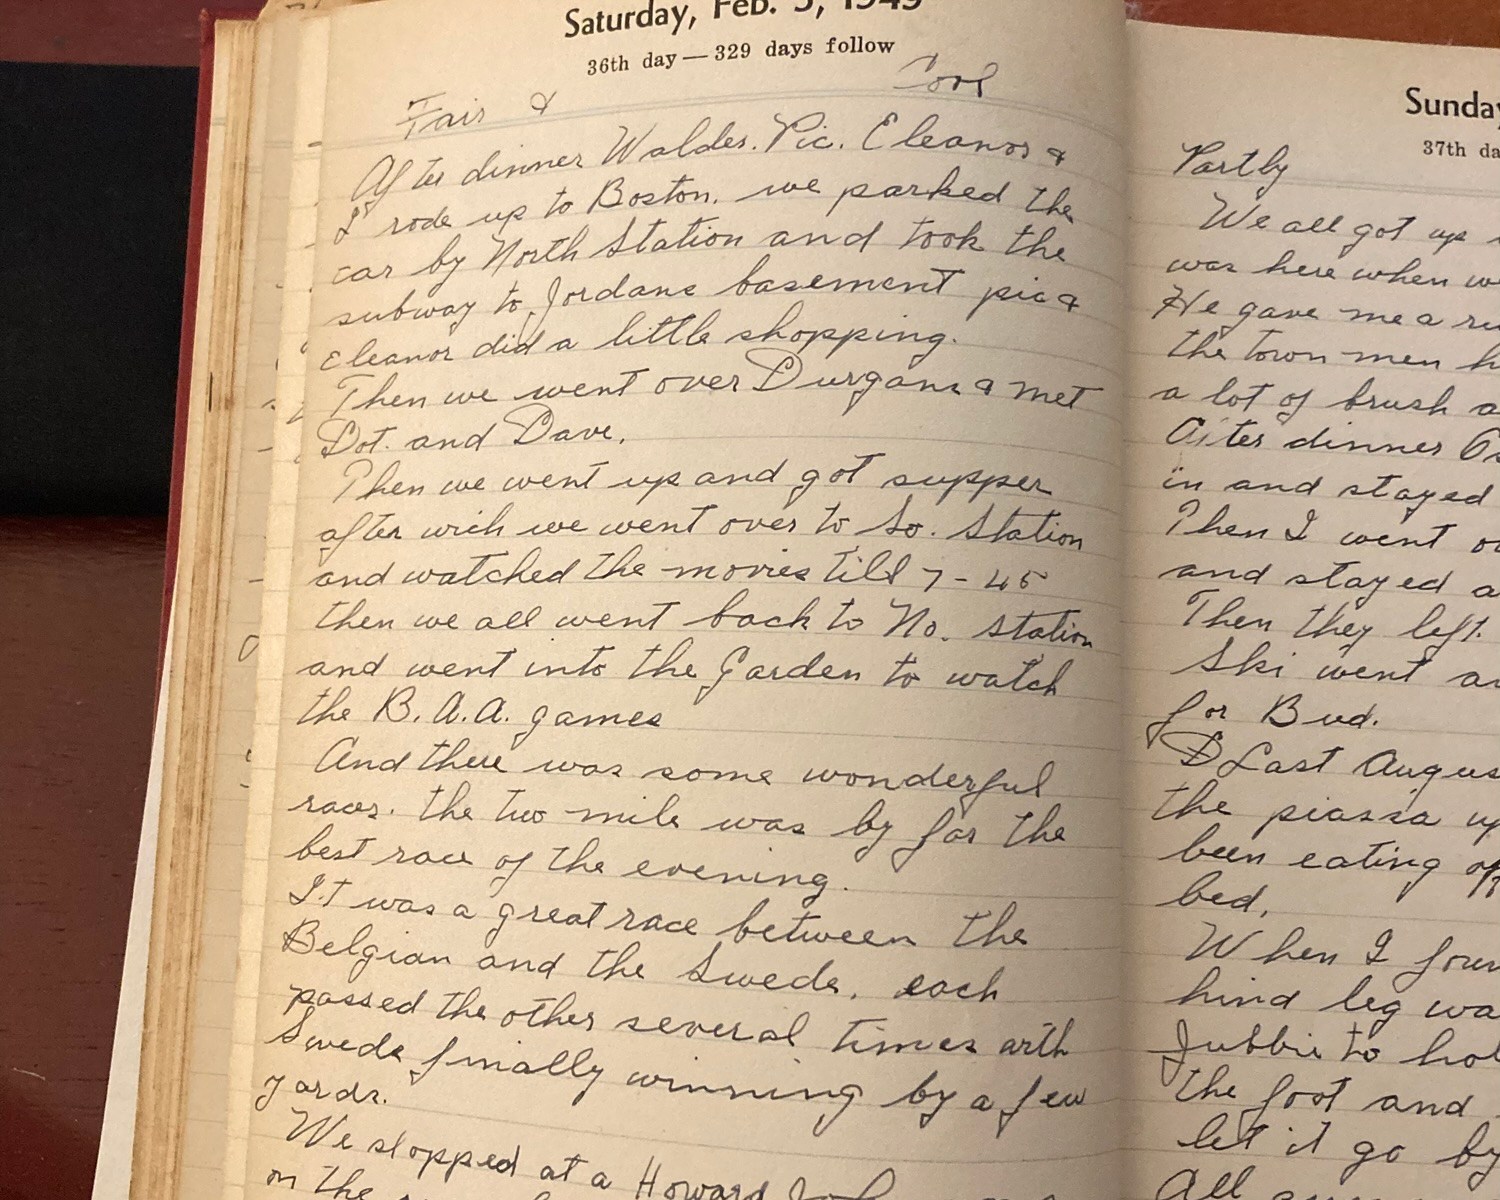 Saturday, Feb. 5, 1949
36th day — 329 days follow
Fair & Cool
After dinner Waldes. Pic. Eleanor &
I rode up to Boston. we parked the
car by North Station and took the
subway to Jordans basement pic &
Eleanor did a little shopping.
Then we went over Durgans & met
Dot. and Dave.
Then we went up and got supper
after wich we went over to So. Station
and watched the movies till 7-45
then we all went back to No. station
and went into the Garden to watch
the B. A. A. games
And there was some wonderful
races. the two mile was by far the
best race of the evening.
It was a great race between the
Belgian and the Swede, each
passed the other several times with
Swede finally winning by a few
yards.
We stopped at a Howard
on the
Sunday
37th da
Partly
We all got up
was here when w
He gave me a ru
the town men h
a lot of brush a
After dinner
in and stayed
Then I went
and stayed a
Then they left.
Ski went
for Bud.
Last Augus
the piassa up
been eating
bed,
When I foun
hind leg wa
Jubbie to hol
the foot and
let it go by
All